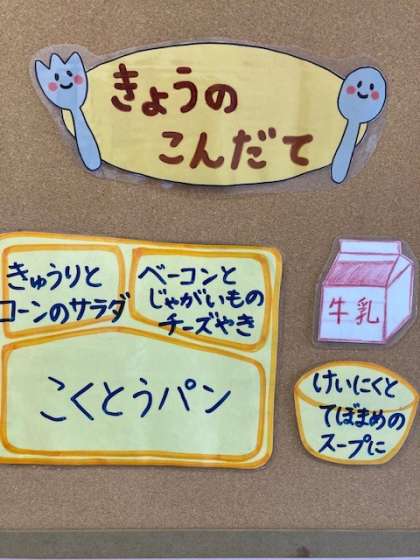 きょうの
こんだて
きゅうりと
コーンのサラダ
ベーコンと
じゃがいもの
チーズやき
こくとうパン
牛乳
けいにくと
てぼまめの
スープに